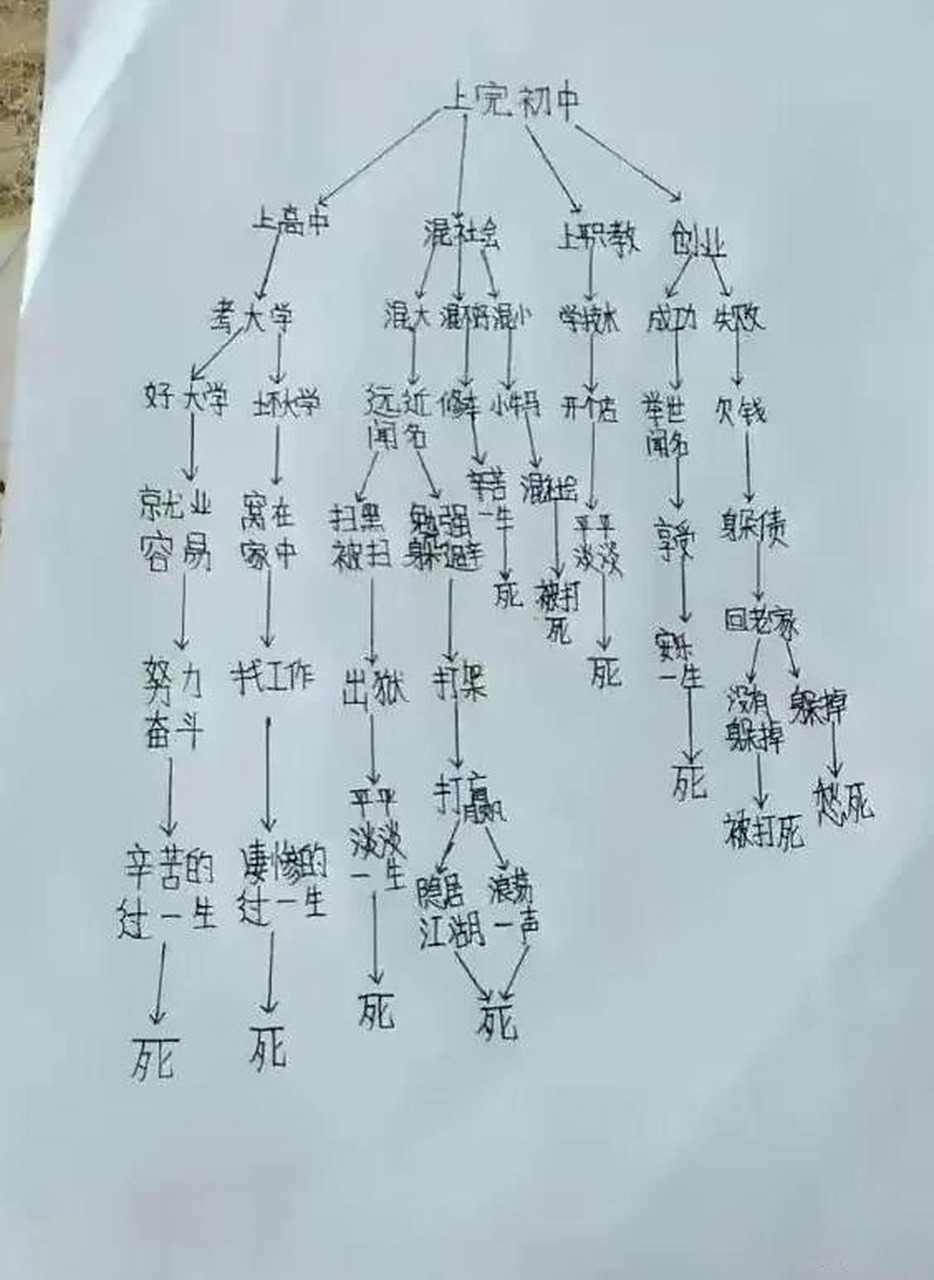 上完初中
上高中
混社会
上职教
创业
考大学
混大
混不好
混小
学技术
成功
失败
好大学
坏大学
远近
闻名
修车
小牛马
开个店
举世
闻名
欠钱
就业
容易
窝在
家中
扫黑
被扫
勉强
躲避
辛苦
一生
混社会
平平
淡淡
享受
躲债
死
被打
死
回老家
努力
奋斗
找工作
出狱
打架
死
安乐
一生
没有
躲掉
躲掉
平平
淡淡
一生
打赢
死
被打死
愁死
辛苦的
过一生
凄惨的
过一生
隐居
江湖
浪荡
一声
死
死
死
死